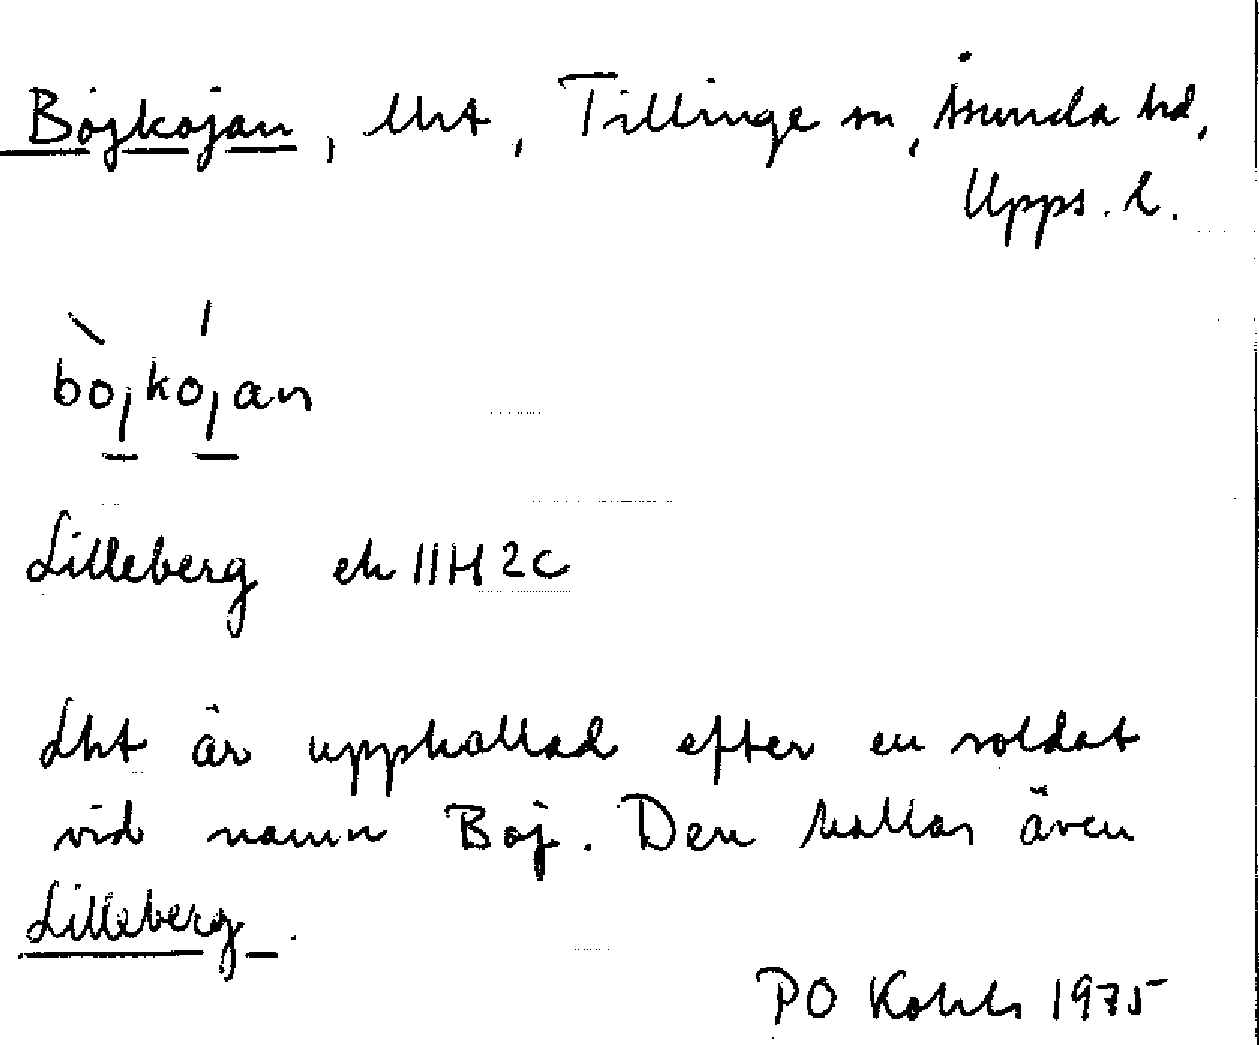 Bojkojan, lht, Tillinge sn, Åsunda hd,
Upps. l.
bòjkójan
Lilleberg ek 11H 2C
Lht är uppkallad efter en soldat
vid namn Boj. Den kallas även
Lilleberg.
PO 1975